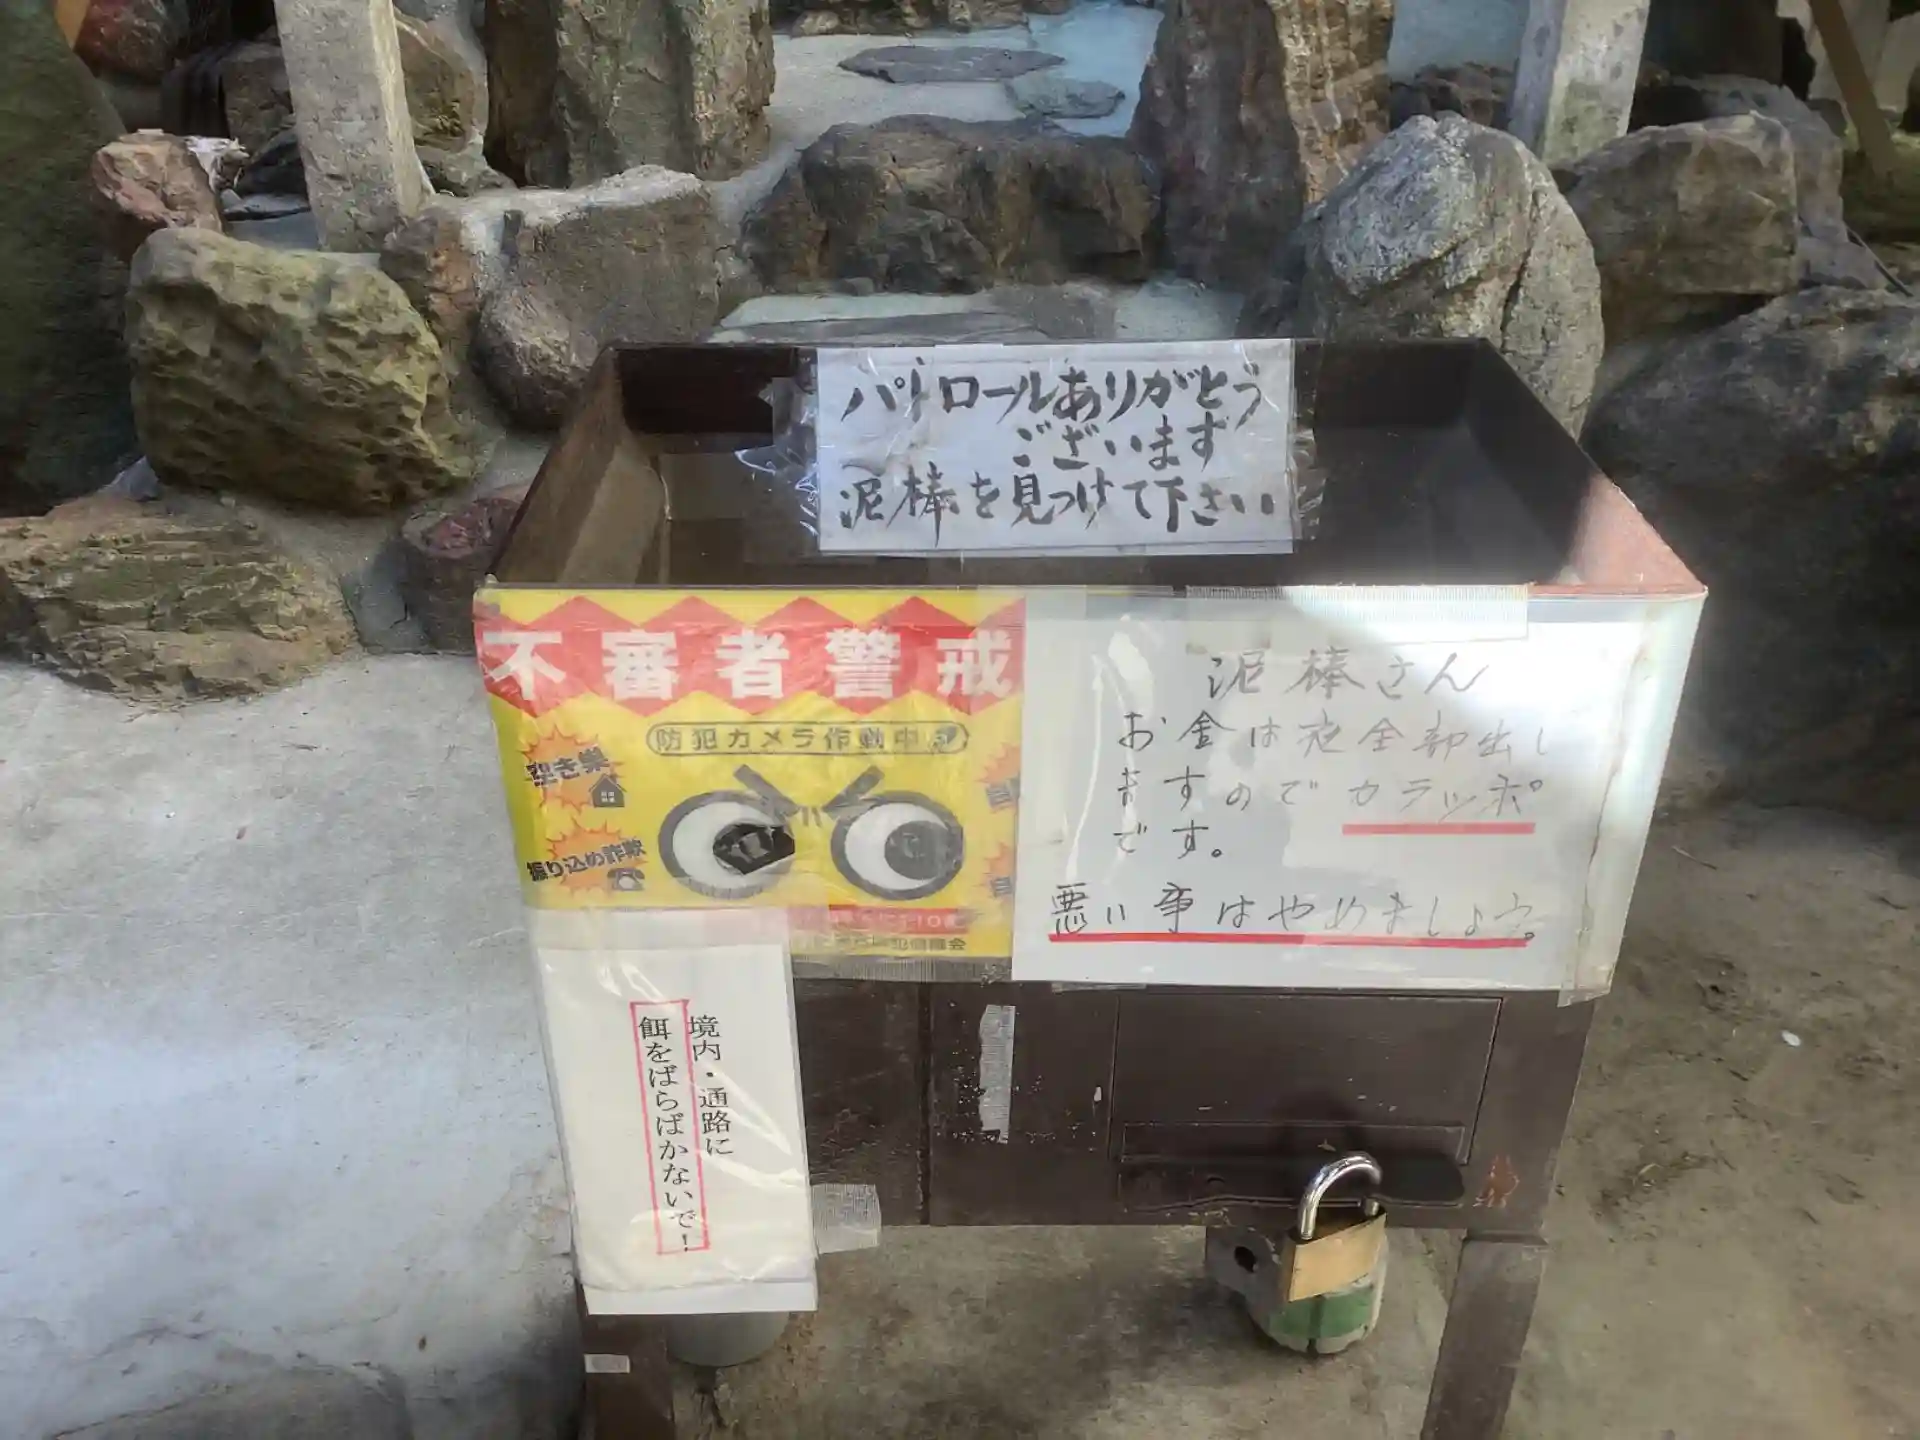 パトロールありがとう
ございます
泥棒を見つけて下さい
不審者警戒
防犯カメラ作動中
空き巣
振り込め詐欺
泥棒さん
お金は夜全部出し
ますのでカラッポ
です。
悪い事はやめましょう。
境内・通路に
餌をばらばかないで!